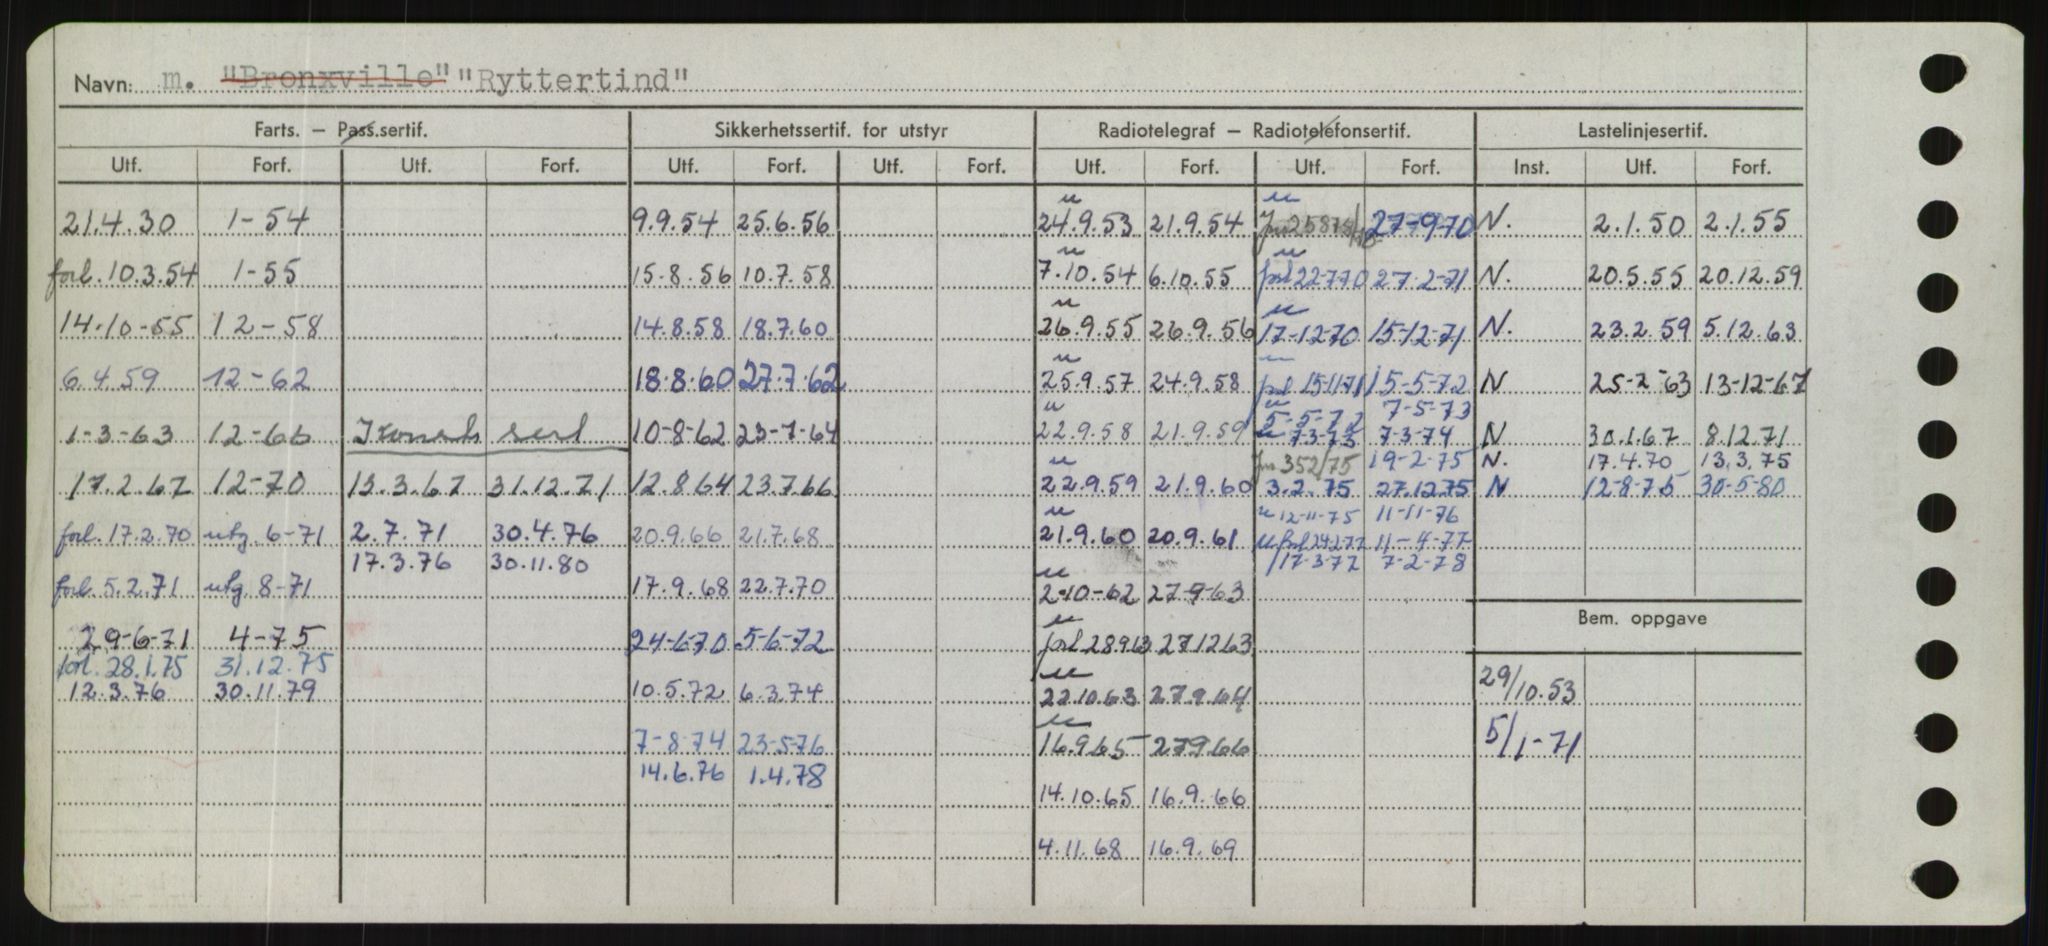 Navn: m. "Bronxville" "Ryttertind"
Farts. – Pass.sertif. Sikkerhetssertif. for utstyr Radiotelegraf – Radiotelefonsertif. Lastelinjesertif.
Utf. Forf. Utf. Forf. Utf. Forf. Utf. Forf. Utf. Forf. Utf. Forf. Inst. Utf. Forf.
21.4.30 1-54 9.9.54 25.6.56 24.9.53 21.9.54 27-9-70 N. 2.1.50 2.1.55
forl. 10.3.54 1-55 15-8.56 10.7.58 7.10.54 6.10.55 forl 22-7-70 27-2-71 N. 20.5.55 20.12.59
14.10-55 12-58 14.8.58 18.7.60 26.9.55 26.9.56 17-12-70 15-12-71 N. 23.2.59 5.12.63
6.4.59 12-62 18-8.60 27.7.62 25.9.57 24.9.58 forl 15-11-71 15-5-72 N 25-2-63 13-12-67
5-5-72 7-5-73
1-3-63 12-66 sert 10-8-62 23-7-64 22.9.58 21.9.59 7-3-73 7-3-74 N 30.1.67 8.12.71
352/75 19-2-75 N. 17.4.70 13.3.75
17.2.67 12-70 13.3.67 31.12.71 12.8.64 23.7.66 22.9.59 21.9.60 3.2.75 27.12.75 N 12-8-75 30-5-80
12-11-75 11-11-76
forl. 17.2.70 utg. 6-71 2.7.71 30.4.76 20.9.66 21.7.68 21.9.60 20.9.61 forl 24.2.77 11-4-77
17.3.76 30.11.80 17-3-77 7-2-78
forl. 5.2.71 utg. 8-71 17.9.68 22.7.70 2-10-62 27-9-63
Bem. oppgave
29-6-71 4-75 24-6-70 5-6-72 forl 28963 271263
forl. 28.1.75 31.12.75
12.3.76 30.11.79 10.5.72 6.3.74 22.10.63 27.9.64 29/10.53
7-8-74 23-5-76 16.9.65 27.9.66 5/1-71
14.6.76 1.4.78
14.10.65 16.9.66
4.11.68 16.9.69